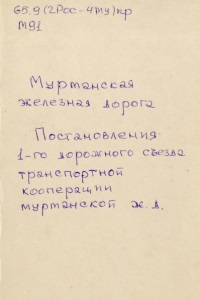 65.9(2Рос-4Му)кр
М91
Муртанская
железная дорога
Постановления
1-го дорожного съезда
транспортной
кооперации
муртанской ж.д.